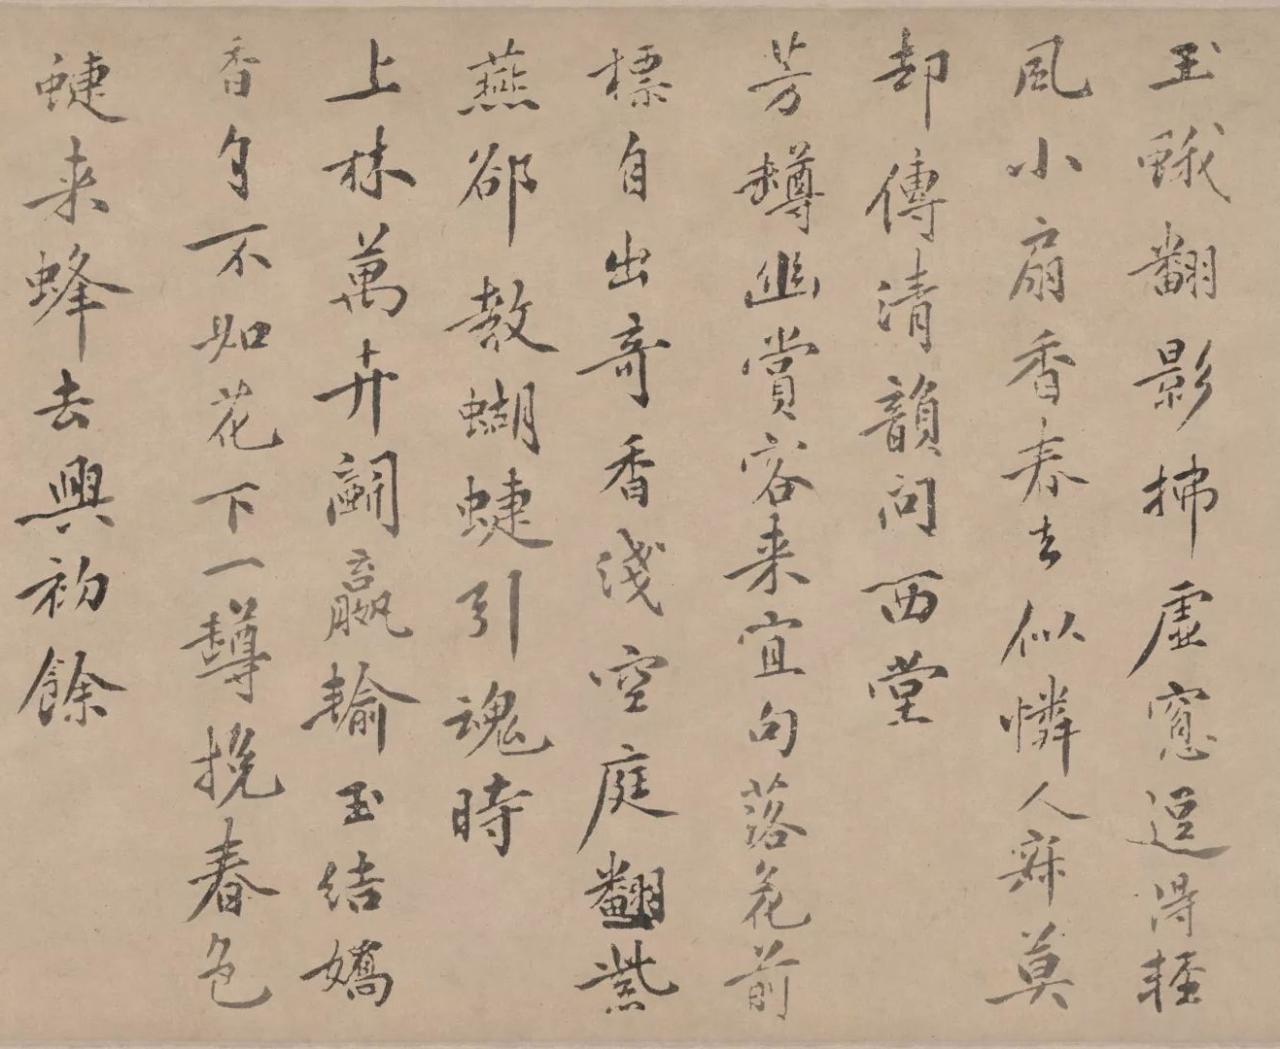 玉蛾翻影拂虛窻逗得輕
風小扇香春去似憐人寂莫
却傳清韻問西堂
芳罇幽賞客来宜句落花前
標自出奇香淺空庭翻紫
燕郤教蝴蜨引魂時
上林萬卉鬭贏輸玉結嬌
香自不如花下一罇挽春色
蜨来蜂去興初餘